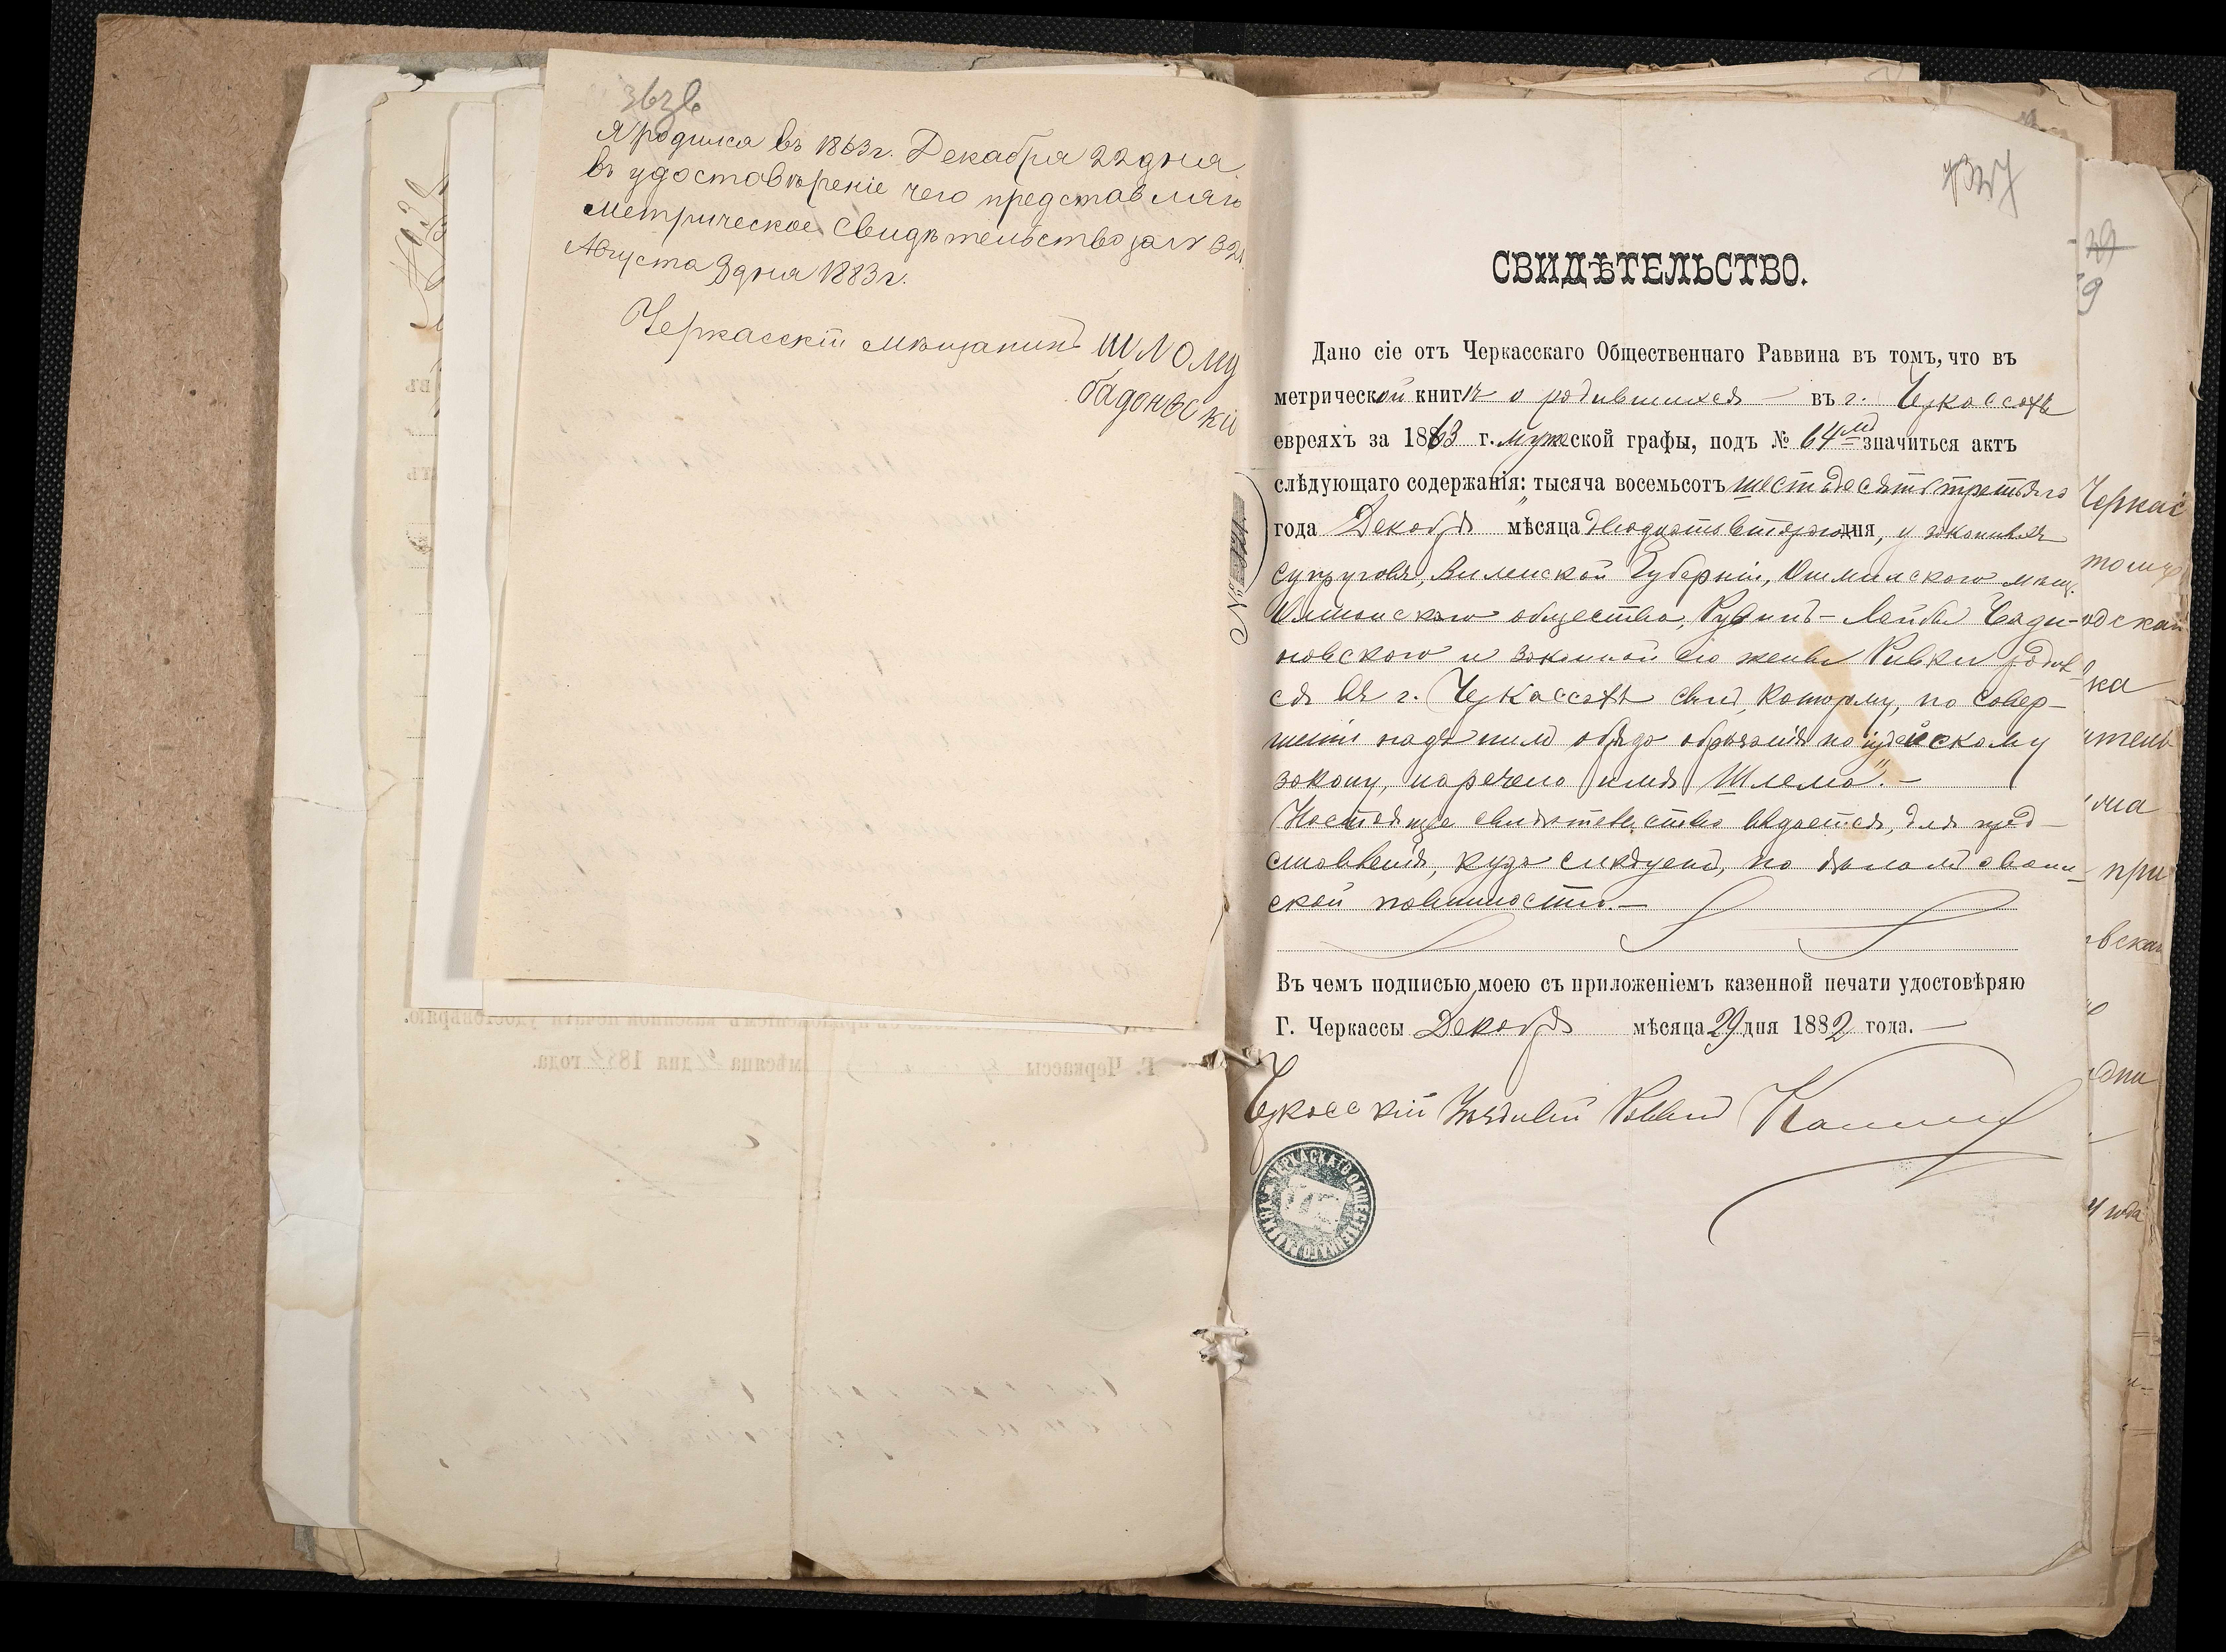 Я родился въ 1863 г. Декабря 22 дня.
въ удостовѣреніе чего представляю
метрическое свидѣтельство за №
Августа 9 дня 1883 г.
Черкасскій мѣщанинъ Шлома
бадоновскій
СВИДѢТЕЛЬСТВО.
Дано сіе отъ Черкасскаго Общественнаго Раввина въ томъ, что въ
метрической книгѣ о родившихся — въ г. Черкассахъ
евреяхъ за 1863 г. мужеской графы, подъ № 64мъ значиться актъ
слѣдующаго содержанія: тысяча восемьсотъ шестьдесятъ третьяго
года Декабря мѣсяца двадцать втораго дня, у законныхъ
супруговъ, Виленской Губерніи, Ошмянскаго мѣщ.
общества, Рувинъ-Лейбы Бади-
новскаго и законной его жены Ривки родил-
ся въ г. Черкассахъ сынъ, которому, по совер-
шеніи надъ нимъ обряда обрѣзанія по іудейскому
закону, наречено имя „Шлема". —
Настоящее свидѣтельство выдается, для пред-
ставленія, куда слѣдуетъ, по дѣламъ о воин-
ской повинности. —
Въ чемъ подписью моею съ приложеніемъ казенной печати удостовѣряю
Г. Черкассы Декабря мѣсяца 29 дня 1882 года. —
Черкасскій Уѣздный Раввинъ
ЧЕРКАСКАГО ОБЩЕСТВЕННАГО РАВВИНА
Черкас
ка
при
года